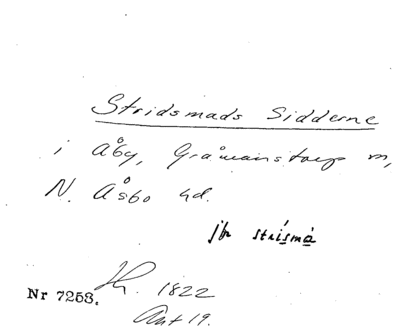 Stridsmads Sidderne
i Åby, Gråmanstorp m,
N. Åsbo hd.
jfr strísmà
Nr 7258. 1822
Ant 19.